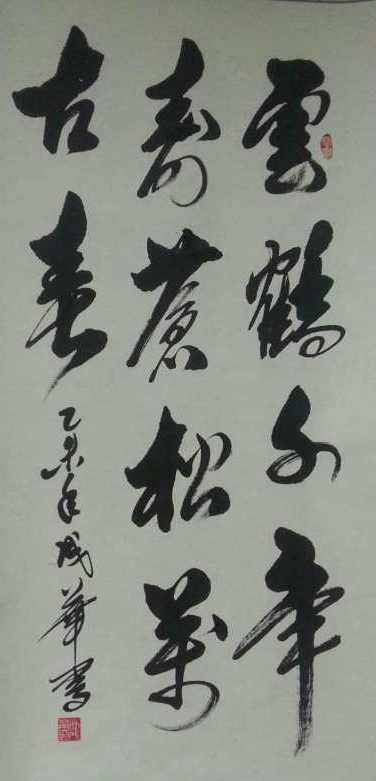 雲鶴千年
壽蒼松萬
古春
乙未年成華書